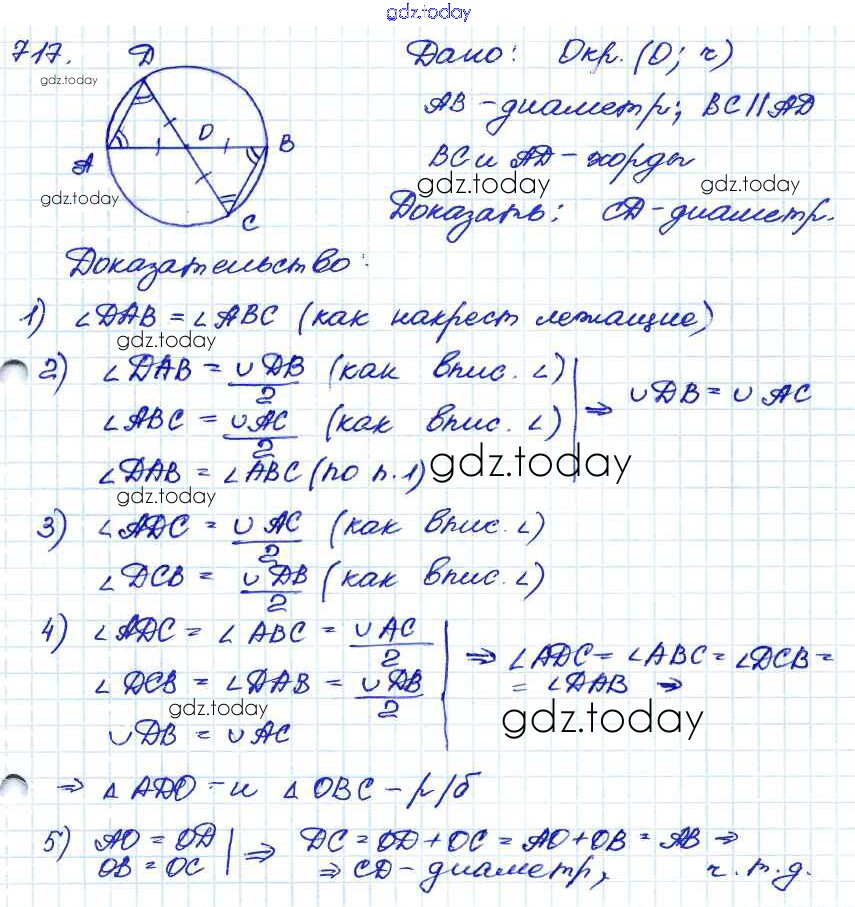 gdz.today
717.
gdz.today
D
O
A
B
C
gdz.today
Дано: Окр. (O; r)
AB - диаметр; BC || AD
BC и AD - хорды
gdz.today gdz.today
Доказать: CD - диаметр.
Доказательство:
1) ∠DAB = ∠ABC (как накрест лежащие)
gdz.today
2) ∠DAB = ∪DB/2 (как впис. ∠)
∠ABC = ∪AC/2 (как впис. ∠)
∠DAB = ∠ABC (по п.1)
⇒ ∪DB = ∪AC
gdz.today
gdz.today
3) ∠ADC = ∪AC/2 (как впис. ∠)
∠DCB = ∪DB/2 (как впис. ∠)
4) ∠ADC = ∠ABC = ∪AC/2
∠DCB = ∠DAB = ∪DB/2
gdz.today
∪DB = ∪AC
⇒ ∠ADC = ∠ABC = ∠DCB =
= ∠DAB ⇒
gdz.today
⇒ △ADO - и △OBC - р/б
5) AO = OD
OB = OC
⇒ DC = OD + OC = AO + OB = AB ⇒
⇒ CD - диаметр, ч.т.д.